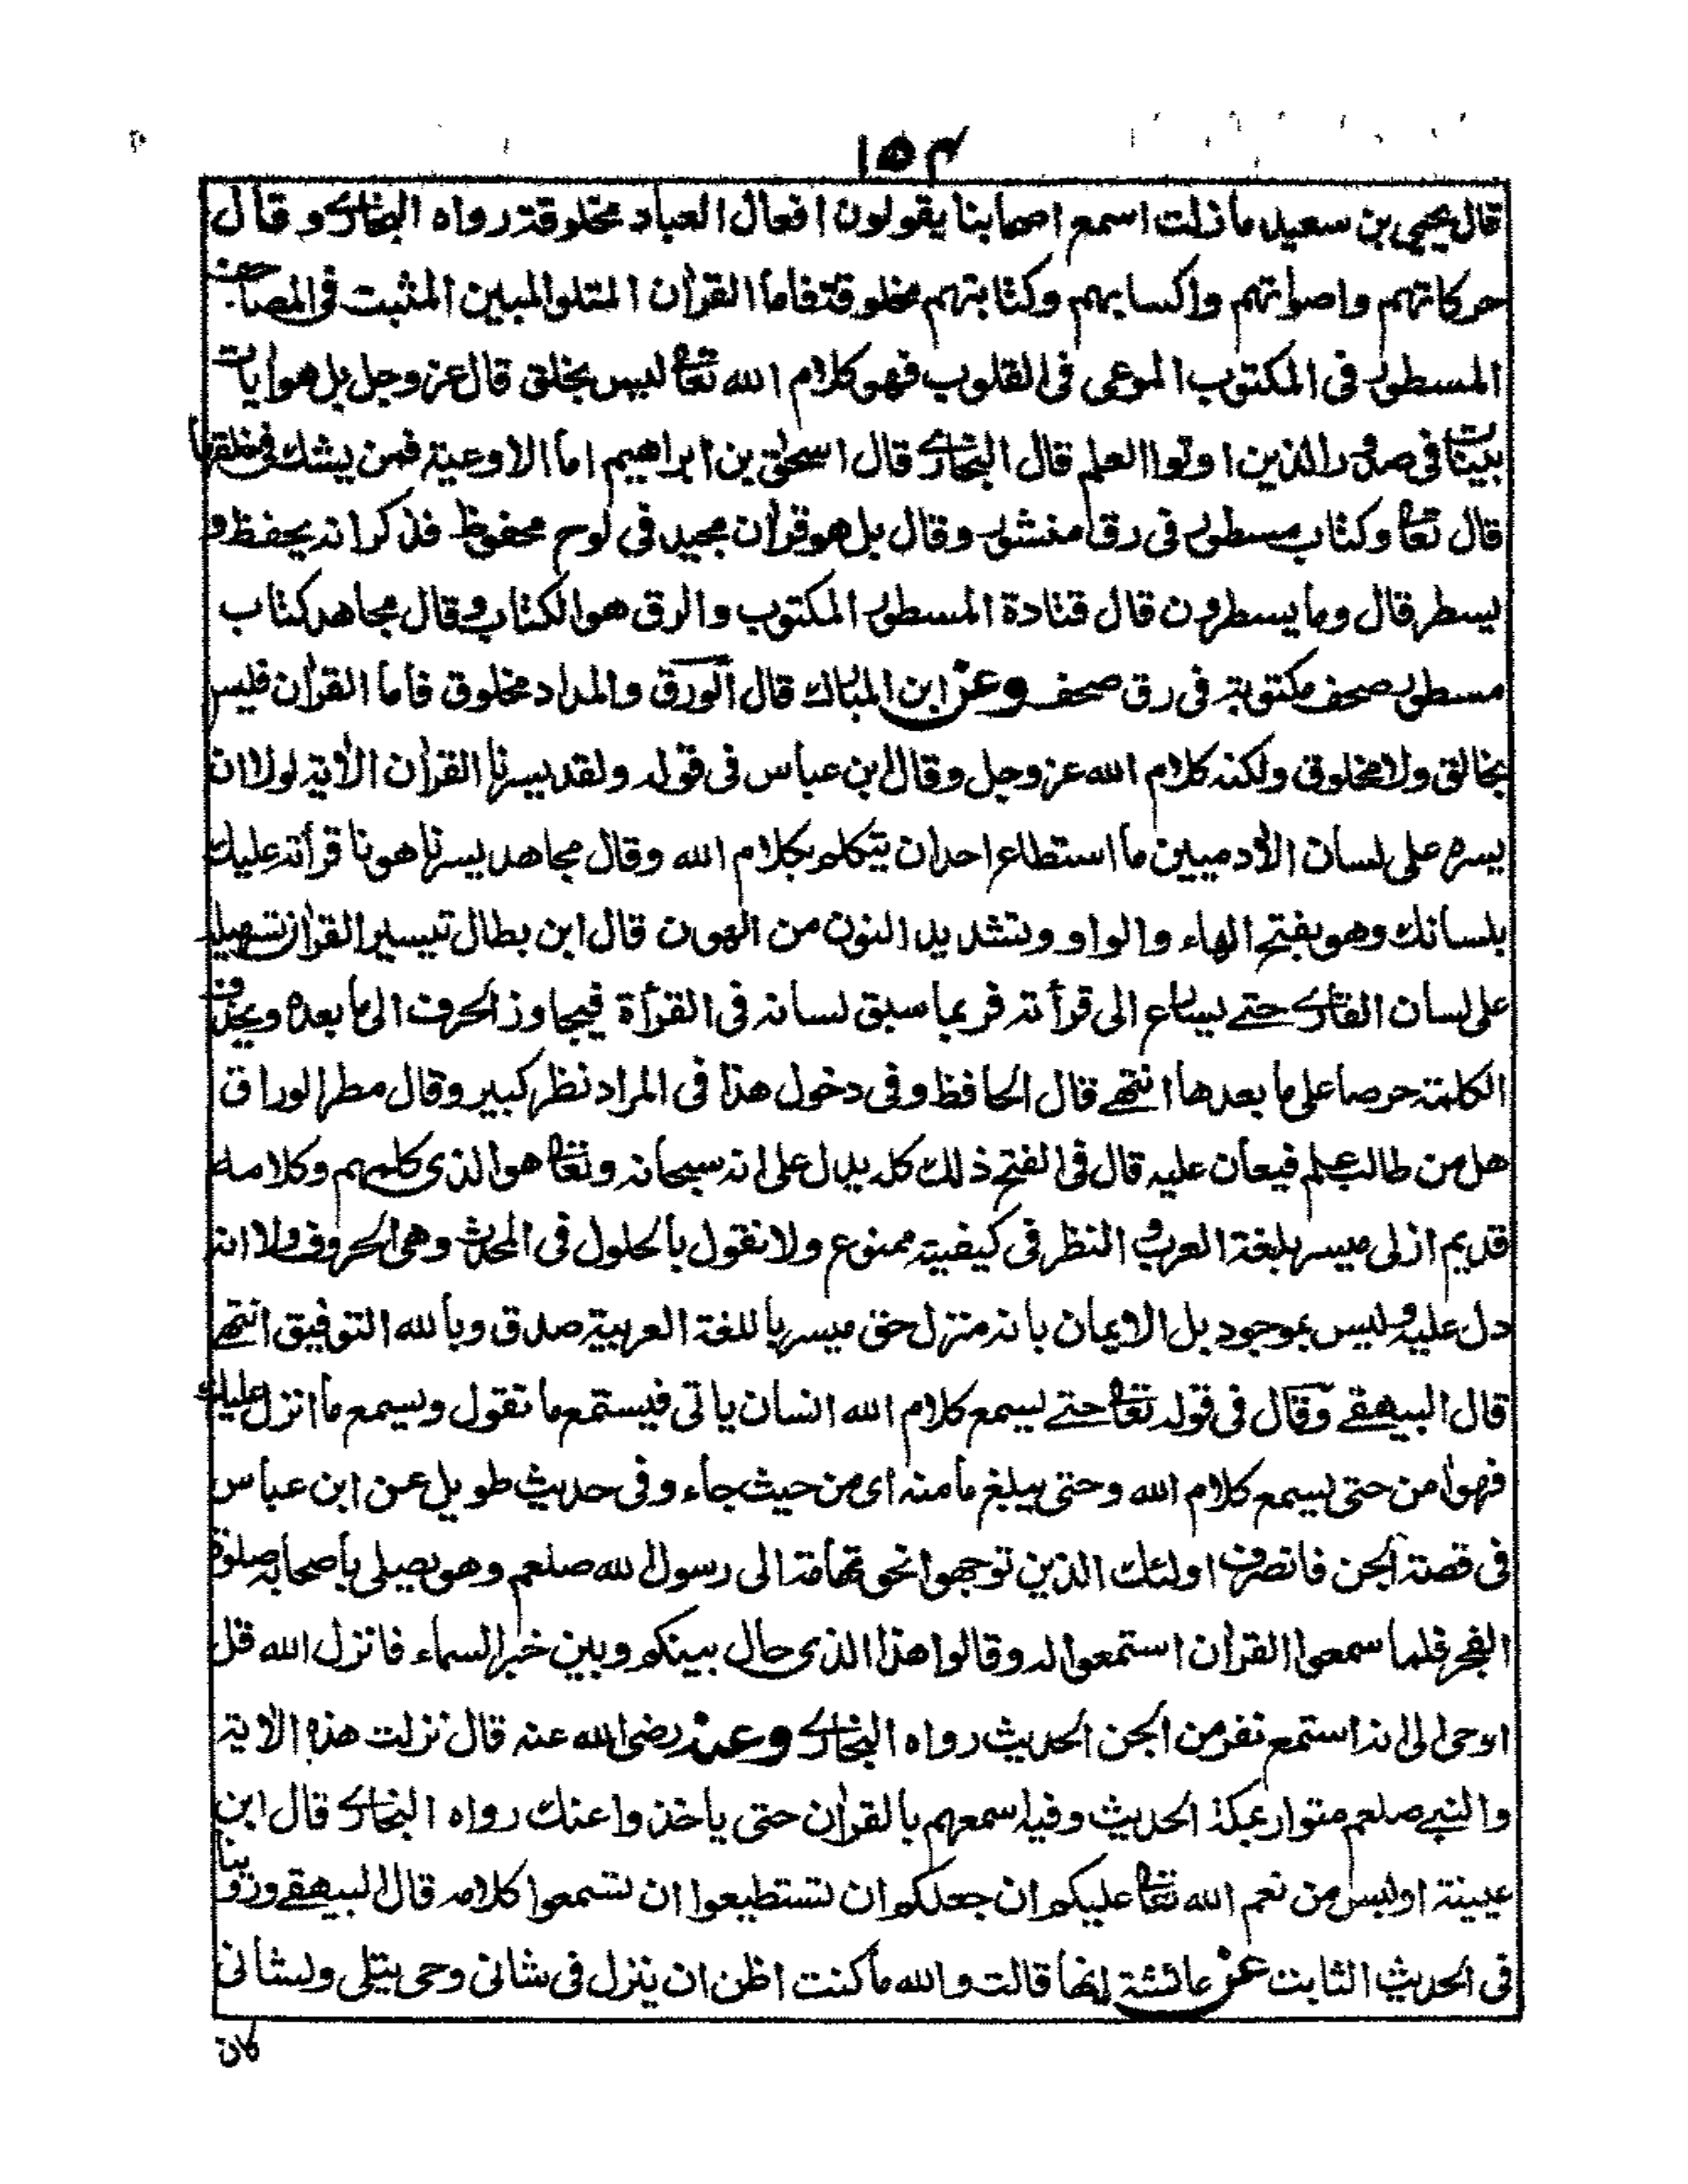 ١٥٤
قال يحيى بن سعيد مازلت اسمع اصحابنا يقولون افعال العباد مخلوقة رواه البخاري وقال
حركاتهم واصواتهم واكسابهم وكتابتهم مخلوقة فاما القرآن المتلو المبين المثبت فى المصاحف
المسطور فى المكتوب الموعى فى القلوب فهو كلام الله تعالى ليس بخلق قال عز وجل بل هو ايات
بينات فى صدور الذين اوتوا العلم قال البخاري قال اسحق بن ابراهيم اما الاوعية فمن يشك فى خلقها
قال تعالى وكتاب مسطور فى رق منشور وقال بل هو قرآن مجيد فى لوح محفوظ فذكر انه يحفظ و
يسطر قال وما يسطرون قال قتادة المسطور المكتوب والرق هو الكتاب وقال مجاهد كتاب
مسطور صحف مكتوبة فى رق صحف وعن ابن المبارك قال الورق والمداد مخلوق فاما القرآن فليس
بخالق ولا مخلوق ولكنه كلام الله عز وجل وقال ابن عباس فى قوله ولقد يسرنا القرآن الآية لولا ان
يسره على لسان الآدميين ما استطاع احد ان يتكلم بكلام الله وقال مجاهد يسرنا هونا قرأته عليك
بلسانك وهو بفتح الهاء والواو وتشديد النون من الهون قال ابن بطال تيسير القرآن تسهيله
على لسان القاري حتے يسارع الى قرأته فربما سبق لسانه فى القرأة فيجاوز الحرف الى ما بعده ويحذف
الكلمة حرصا على ما بعدها انتهے قال الحافظ وفى دخول هذا فى المراد نظر كبير وقال مطر الوراق
هل من طالب علم فيعان عليه قال فى الفتح ذلك كله يدل على انه سبحانه وتعالى هو الذى كلمهم وكلامه
قديم ازلى ميسر بلغة العرب والنظر فى كيفيته ممنوع ولا نقول بالحلول فى المحدث وهى الحروف ولا انه
دل عليه وليس بموجود بل الايمان بانه منزل حق ميسر باللغة العربية صدق وبالله التوفيق انتهے
قال البيهقے وقال فى قوله تعالى حتے يسمع كلام الله انسان ياتى فيستمع ما تقول ويسمع ما انزل عليك
فهو امن حتى يسمع كلام الله وحتى يبلغ مأمنه اى من حيث جاء وفى حديث طويل عن ابن عباس
فى قصة الجن فانصرف اولئك الذين توجهوا نحو تهامة الى رسول الله صلعم وهو يصلى باصحابه صلوة
الفجر فلما سمعوا القرآن استمعوا له وقالوا هذا الذى حال بينكم وبين خبر السماء فانزل الله قل
اوحى الى انه استمع نفر من الجن الحديث رواه البخاري وعنه رضى الله عنه قال نزلت هذه الاية
والنبے صلعم متوار بمكة الحديث وفيه اسمعهم بالقرآن حتى ياخذوا عنك رواه البخاري قال ابن
عيينة اوليس من نعم الله تعالى عليكم ان جعلكم ان تستطيعوا ان تسمعوا كلامه قال البيهقے وروينا
فى الحديث الثابت عن عائشة انها قالت والله ما كنت اظن ان ينزل فى شانى وحى يتلى ولشانى
كان